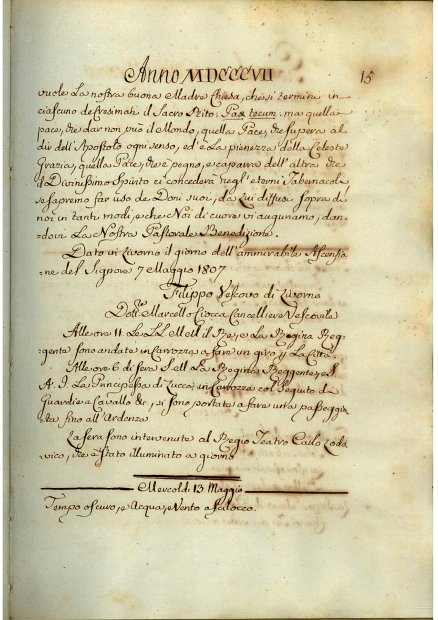 Anno MDCCCVII 15
vuole La nostra buona Madre Chiesa, che si termini in
ciascuno de Cresimati il Sacro Rito: Pax tecum: ma quella
pace, che dar non può il Mondo, quella Pace, che supera al
dir dell'Apostolo ogni senso, ed è La pienezza della Celeste
Grazia, quella Pace, che è pegno, e caparra dell'altra che
il Divinissimo Spirito ci concederà negl'eterni Tabernacoli
se sapremo far uso de Doni suoi, da Lui diffusi sopra di
noi in tanti modi, e che Noi di cuore vi auguriamo, dan-
dovi La Nostra Pastorale Benedizione.
Dato in Livorno il giorno dell'ammirabile Ascensio-
ne del Signore 7 Maggio 1807
Filippo Vescovo di Livorno
Dott. Marcello Ciocca Cancelliere Vescovile
Alle ore 11. Le LL. MM. il Re, e La Regina Reg-
gente sono andate in Carrozza a fare un giro p La Città.
Alle ore 6 di sera S. M. La Regina Reggente, e S.
A. I. La Principessa di Lucca, in Carrozza col Seguito di
Guardie a Cavallo &c., si sono portate a fare una passeggia
ta fino all'Ardenza.
La sera sono intervenute al Regio Teatro Carlo Lodo-
vico, che è stato illuminato a giorno
Mercoldì 13 Maggio
Tempo oscuro, e Acqua, e Vento a Scilocco.